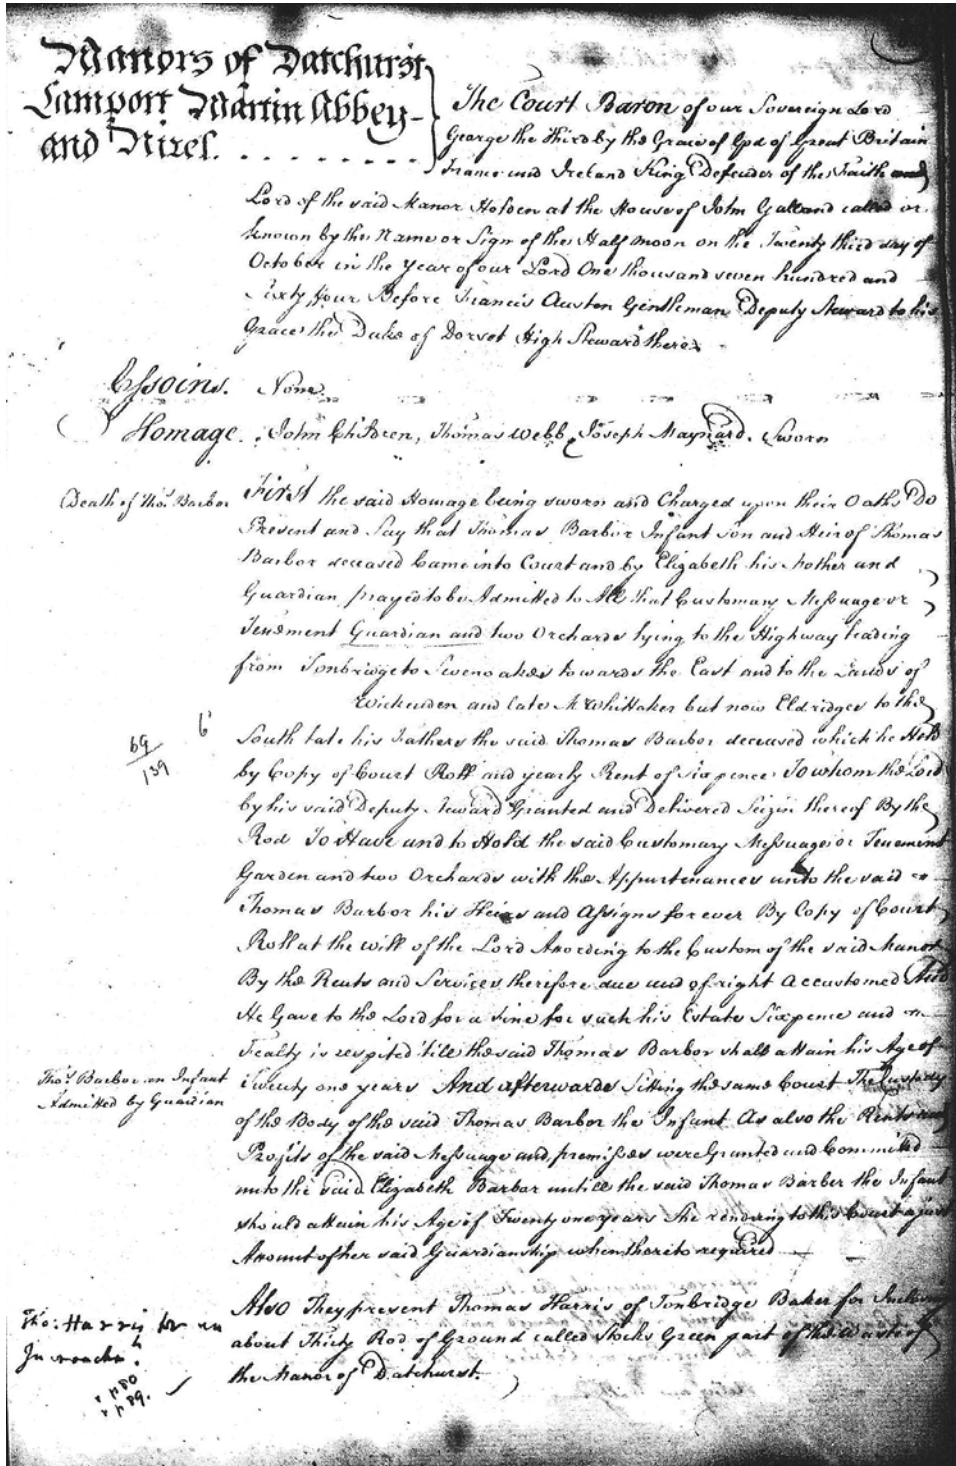 Manors of Datchurst
Lamport Martin Abbey
and Nizel.
The Court Baron of our Sovereign Lord
George the Third by the Grace of God of Great Britain
France and Ireland King Defender of the Faith and
Lord of the said Manor Holden at the House of John Galland called or
known by the Name or Sign of the Half moon on the Twenty third day of
October in the Year of our Lord One thousand seven hundred and
Sixty four Before Francis Austen Gentleman Deputy Steward to his
Grace the Duke of Dorset High Steward there.
Essoins. None.
Homage. John Children, Thomas Webb, Joseph Maynard. Sworn
Death of Tho.s Barbor
First the said Homage being sworn and Charged upon their Oaths Do
Present and Say that Thomas Barbor Infant son and Heir of Thomas
Barbor deceased Came into Court and by Elizabeth his Mother and
Guardian prayed to be Admitted to All that Customary Messuage or
Tenement Guardian and two Orchards lying to the Highway leading
from Tonbridge to Sevenoakes towards the East and to the Lands of
Wickenden and late Mr Whittaker but now Eldridges to the
69
/
139
6
South late his Fathers the said Thomas Barbor deceased which he Held
by Copy of Court Roll and yearly Rent of sixpence To whom the Lord
by his said Deputy Steward Granted and Delivered Seizin thereof By the
Rod To Have and to Hold the said Customary Messuage or Tenement
Garden and two Orchards with the Appurtenances unto the said
Thomas Barbor his Heirs and Assigns for ever By Copy of Court
Roll at the will of the Lord According to the Custom of the said Manor
By the Rents and Services therefore due and of right Accustomed And
He Gave to the Lord for a fine for such his Estate Sixpence and
Fealty is respited 'till the said Thomas Barbor shall attain his Age of
Tho.s Barbor an Infant
Admitted by Guardian
Twenty one years And afterwards Sitting the same Court The Custody
of the Body of the said Thomas Barbor the Infant As also the Rents and
Profits of the said Messuage and premisses were Granted and Committed
unto the said Elizabeth Barbor untill the said Thomas Barber the Infant
should attain his Age of Twenty one years She rendring to this Court a just
Account of her said Guardianship when thereto required
Tho: Harris for an
Incroachmt.
p 80
p 89.
Also They present Thomas Harris of Tonbridge Baker for Inclosing
about Thirty Rod of Ground called Stocks Green part of the Waste of
the Manor of Datchurst.